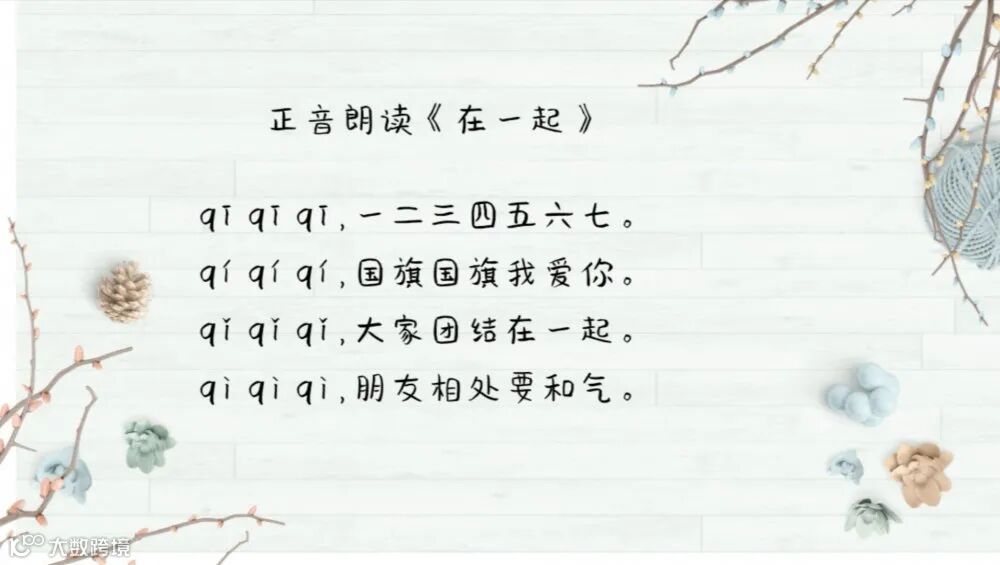 正音朗读《在一起》
qī qī qī,一二三四五六七。
qí qí qí,国旗国旗我爱你。
qǐ qǐ qǐ,大家团结在一起。
qì qì qì,朋友相处要和气。
大数跨境